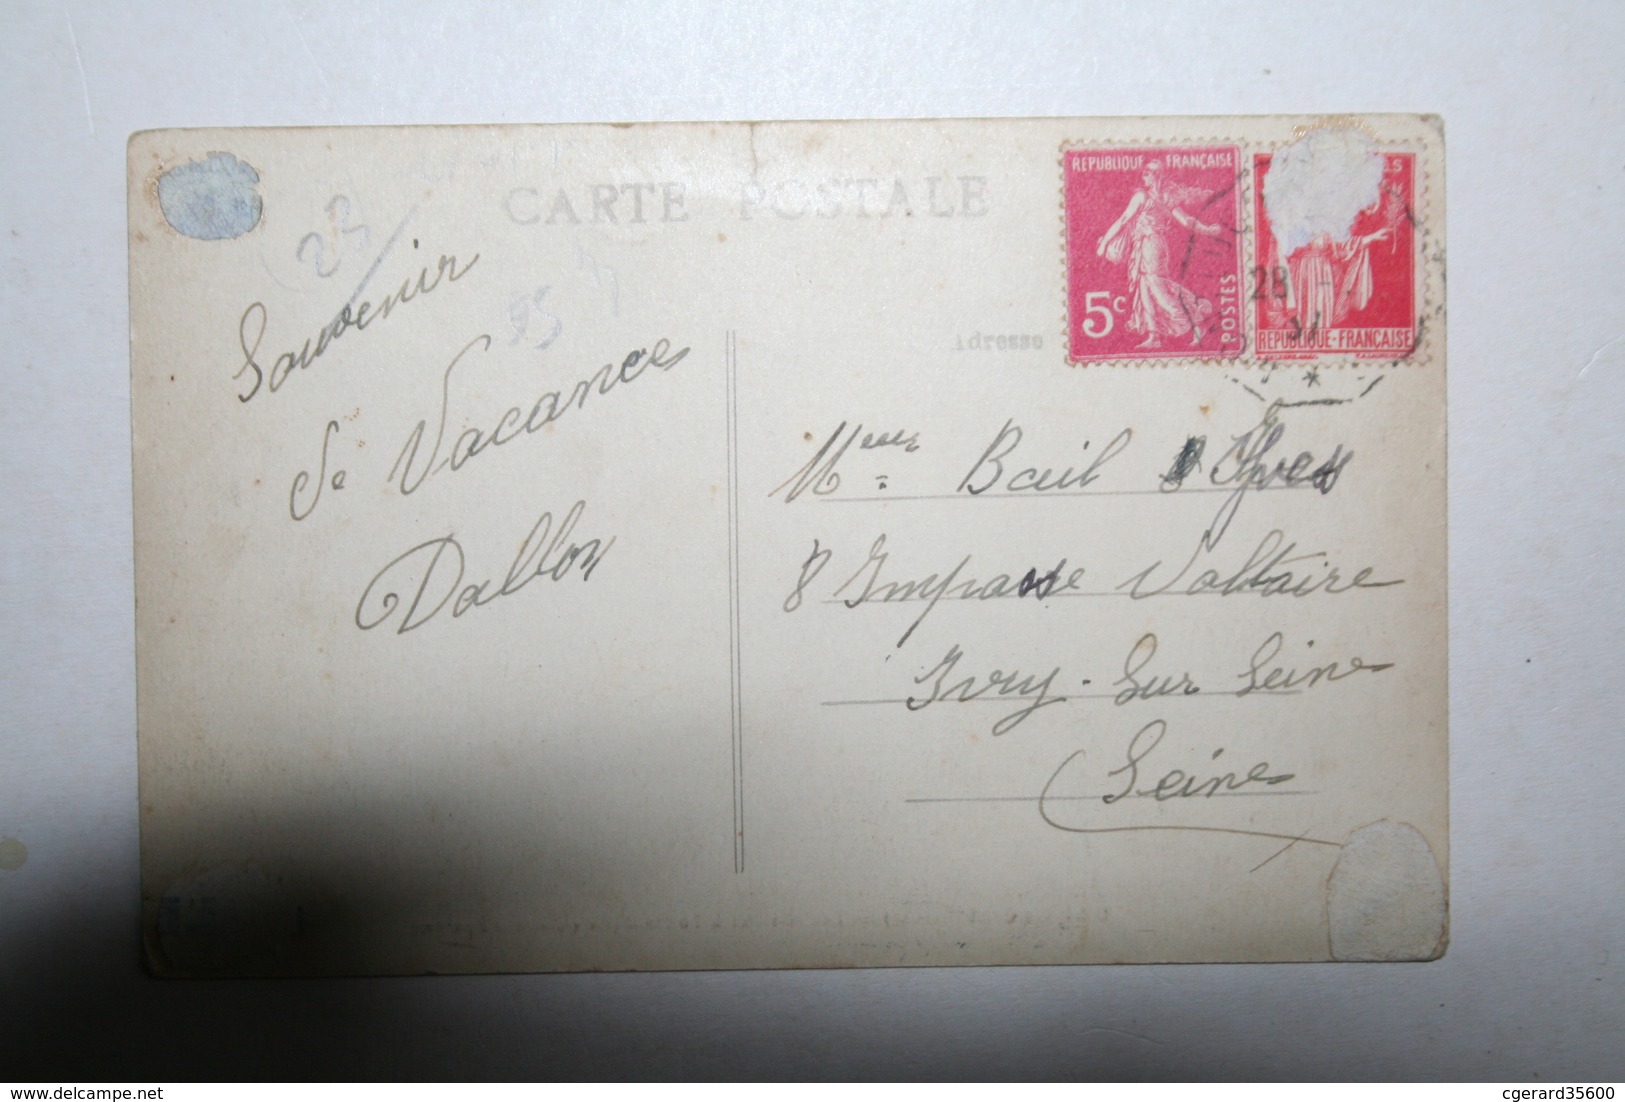 CARTE POSTALE
23
95
Souvenir
de Vacances
Dallon
REPUBLIQUE FRANÇAISE
5c
POSTES
28
REPUBLIQUE-FRANÇAISE
Adresse
Mme Bail Yves
8 Impasse Voltaire
Ivry-Sur Seine
Seine
delcampe.net
cgerard35600